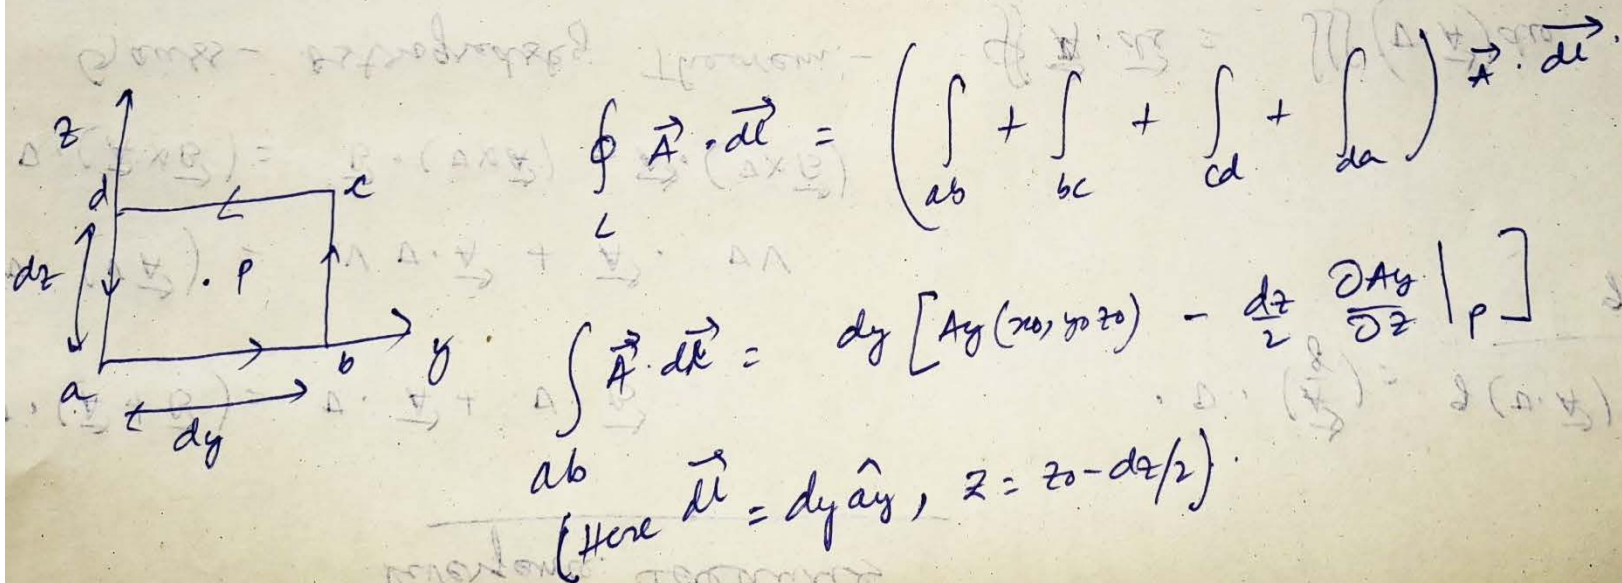 z
d
c
dz
. P
a
b
y
dy
∮_L A⃗ · dl⃗ = ( ∫_ab + ∫_bc + ∫_cd + ∫_da ) A⃗ · dl⃗ .
∫_ab A⃗ · dl⃗ = dy [ Ay (x0, y0 z0) - dz/2 ∂Ay/∂z |_P ]
(Here dl⃗ = dy ây, z = z0 - dz/2) .